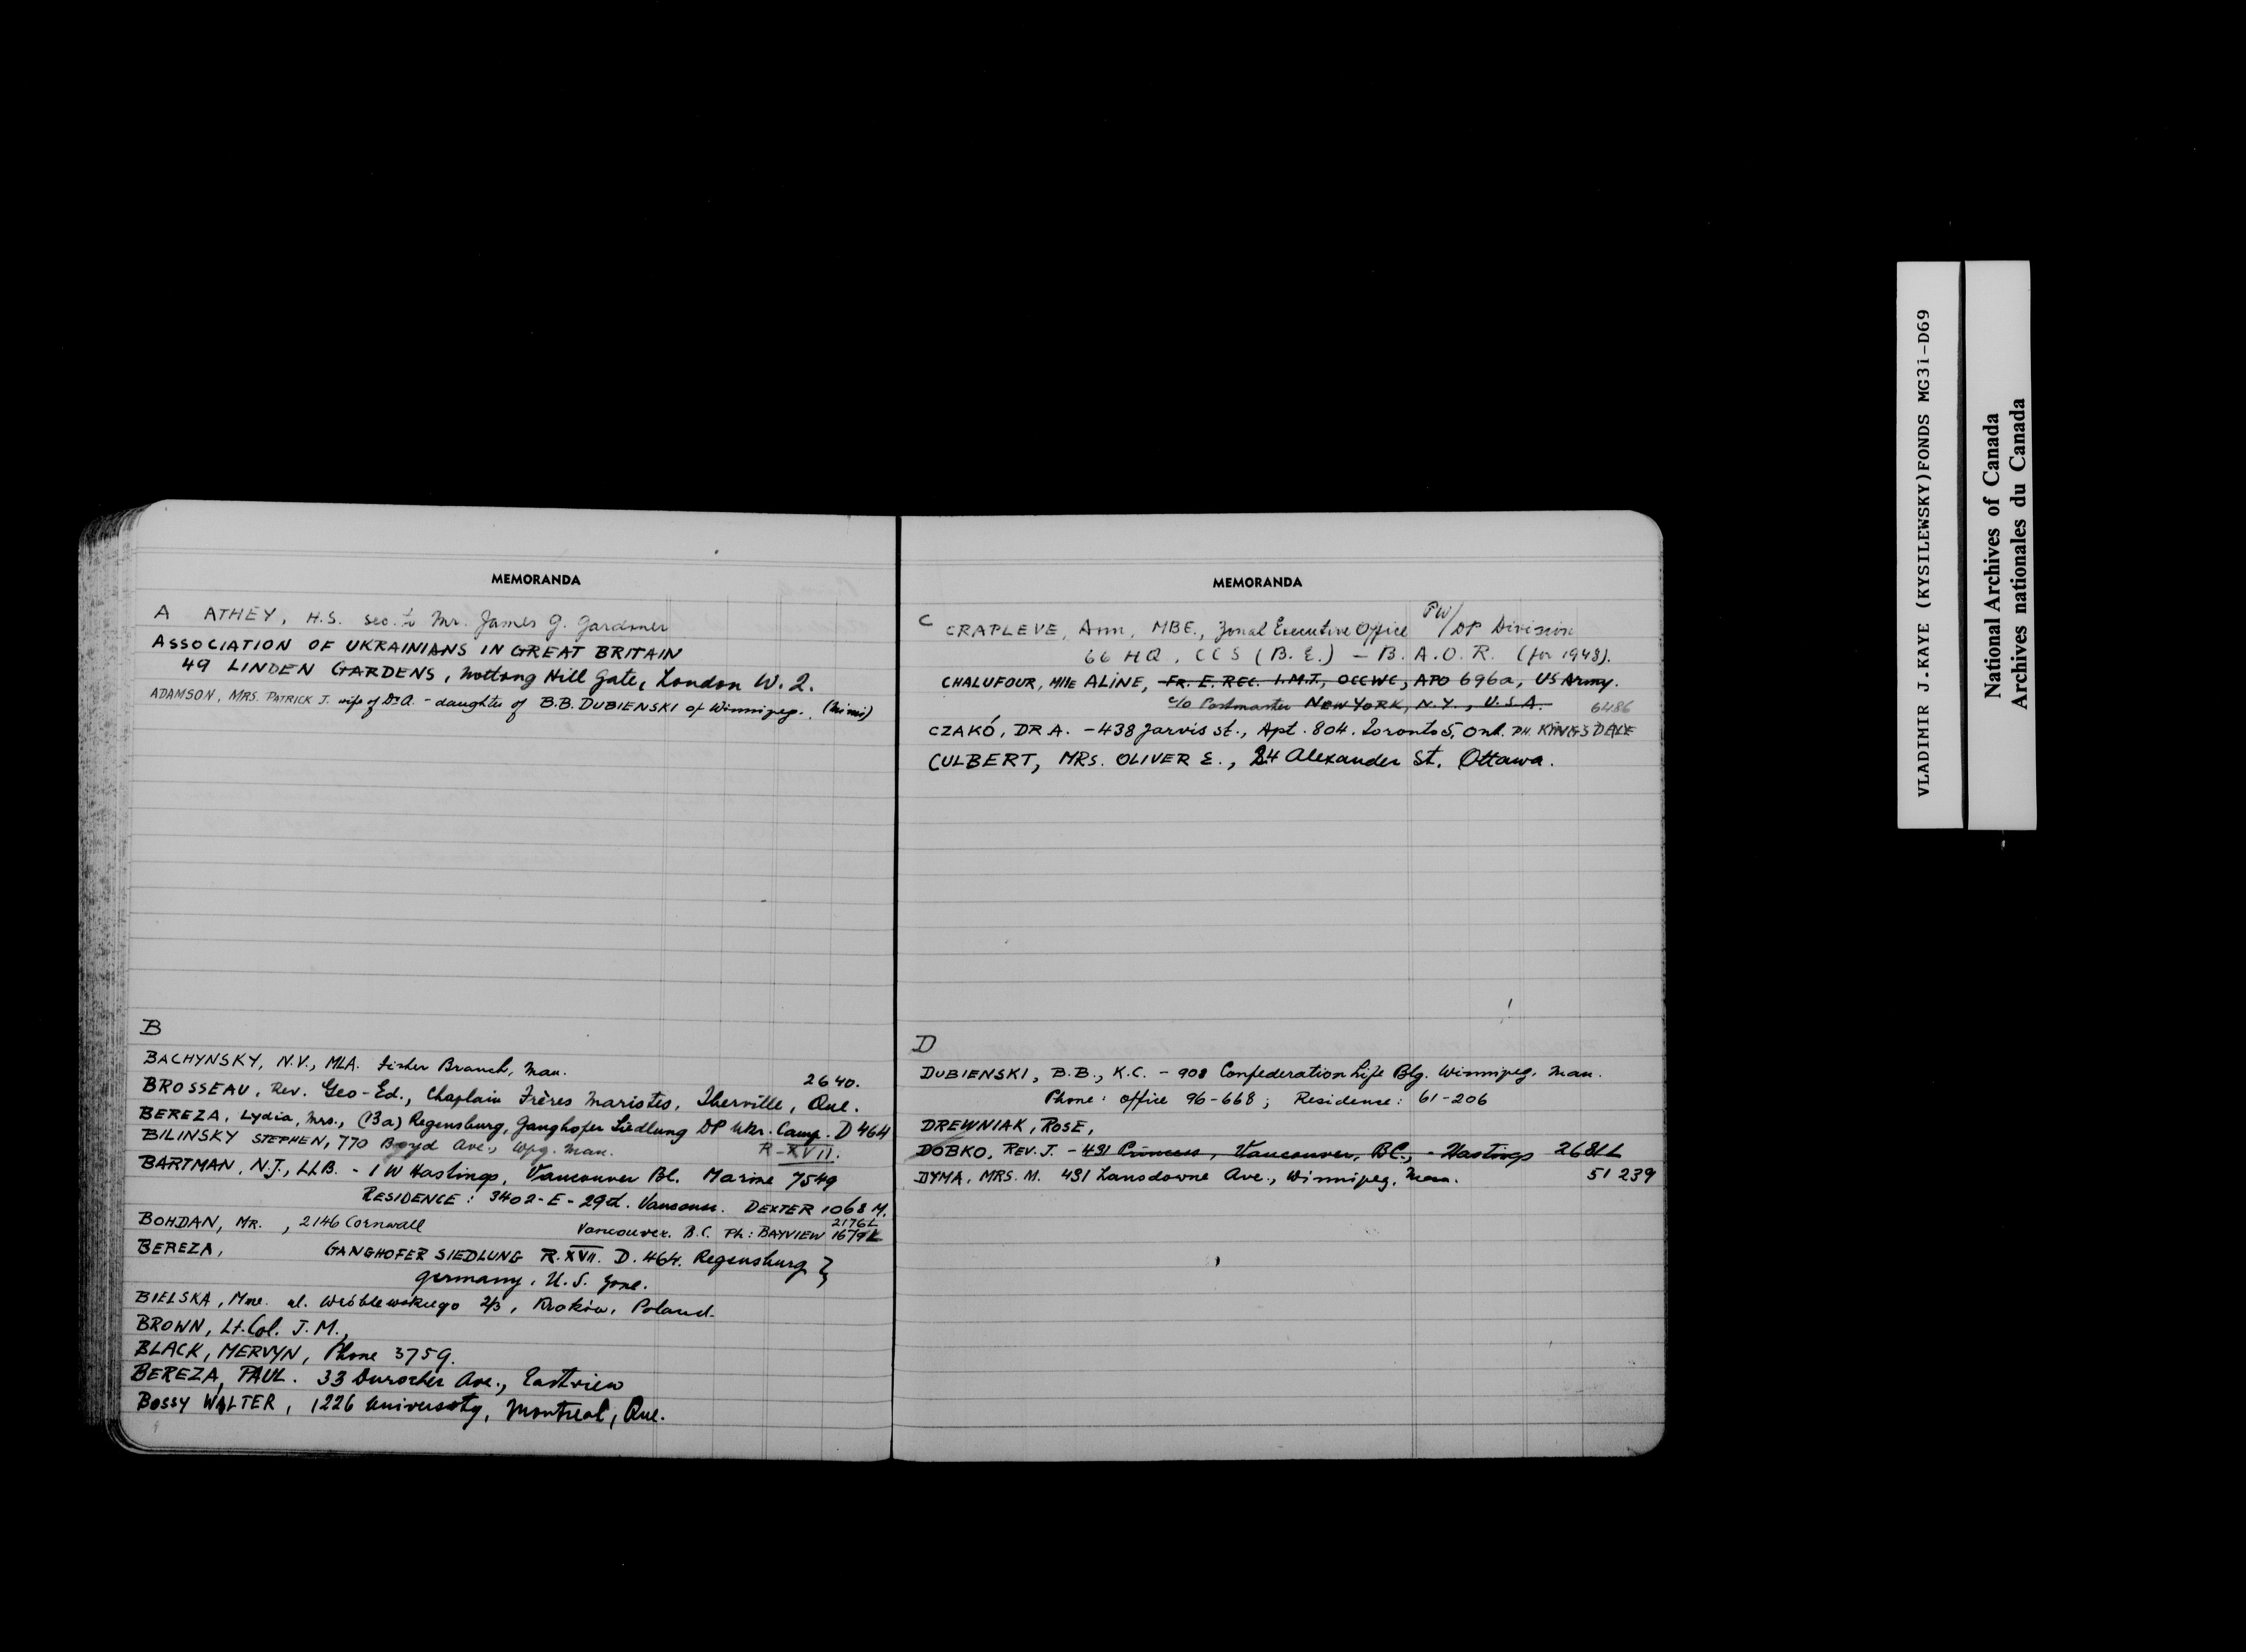 MEMORANDA
A ATHEY, H.S. sec. to Mr. James G. Gardiner
ASSOCIATION OF UKRAINIANS IN GREAT BRITAIN
49 LINDEN GARDENS, Notting Hill Gate, London W. 2.
ADAMSON, MRS. PATRICK J. wife of Dr. A. - daughter of B.B. DUBIENSKI of Winnipeg. (Mimi)
B
BACHYNSKY, N.V., MLA. Fisher Branch, Man.
2640.
BROSSEAU, Rev. Geo-Ed., Chaplain Frères Maristes, Iberville, Que.
BEREZA, Lydia, Mrs., (13a) Regensburg, Ganghofer Siedlung DP Ukr. Camp. D 464
BILINSKY STEPHEN, 770 Boyd Ave., Wpg. Man. R-XVII.
BARTMAN, N.J., LLB. - 1 W Hastings, Vancouver BC. Marine 7549
RESIDENCE: 3402-E-29th. Vancouver. DEXTER 1068 M.
2176L
BOHDAN, MR. , 2146 Cornwall Vancouver. B.C. Ph: BAYVIEW 1679L
BEREZA, GANGHOFER SIEDLUNG R.XVII. D. 464. Regensburg }
Germany, U.S. Zone.
BIELSKA, Mme. ul. Wróblewskiego 2/3, Kraków, Poland.
BROWN, Lt.Col. J.M.,
BLACK, MERVYN, Phone 3759.
BEREZA, PAUL. 33 Durocher Ave., Eastview
BOSSY WALTER, 1226 University, Montreal, Que.
MEMORANDA
C CRAPLEVE, Ann, MBE., Zonal Executive Office PW/DP Division
66 HQ, CCS (B.E.) - B.A.O.R. (for 1948).
CHALUFOUR, Mlle ALINE, Fr. E. REC. I.M.T., OCCWC, APO 696a, US Army.
c/o Postmaster NEW YORK, N.Y., U.S.A. 6486
CZAKÓ, DR A. - 438 Jarvis St., Apt. 804. Toronto 5, Ont. PH. KINGSDALE
CULBERT, MRS. OLIVER E., 24 Alexander St. Ottawa.
D
DUBIENSKI, B.B., K.C. - 908 Confederation Life Blg. Winnipeg. Man.
Phone: office 96-668; Residense: 61-206
DREWNIAK, ROSE,
DOBKO, REV. J. - 491 Princess, Vancouver, BC., - Hastings 2681L
DYMA, MRS. M. 491 Lansdowne Ave., Winnipeg, Man. 51 239
VLADIMIR J.KAYE (KYSILEWSKY)FONDS MG31-D69
National Archives of Canada
Archives nationales du Canada